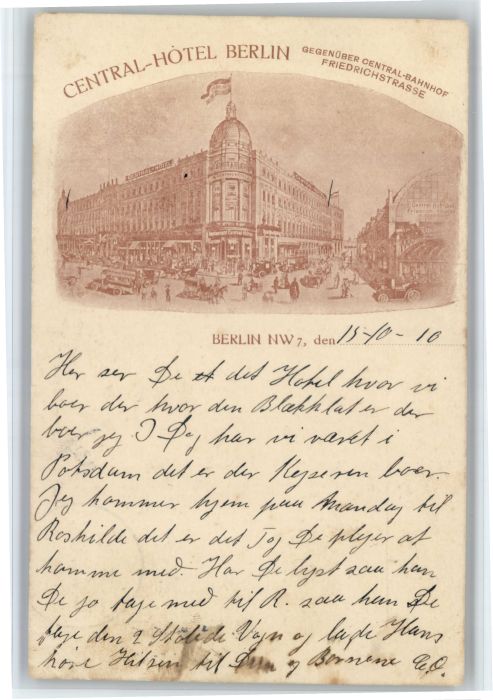 CENTRAL-HÔTEL BERLIN
GEGENÜBER CENTRAL-BAHNHOF
FRIEDRICHSTRASSE
CENTRAL-HOTEL
BERLIN NW7, den 15-10-10
Her ser De et det Hotel hvor vi
boer der hvor den Blækklat er der
boer jeg I Dag har vi været i
Potsdam det er der Kejseren boer.
Jeg kommer hjem paa Mandag til
Roskilde det er det Tog De plejer at
komme med. Har De lyst saa kan
De jo tage med til R. saa kan De
tage den 2 Vogn og lade Hans
køre Hilsen til og Børnene